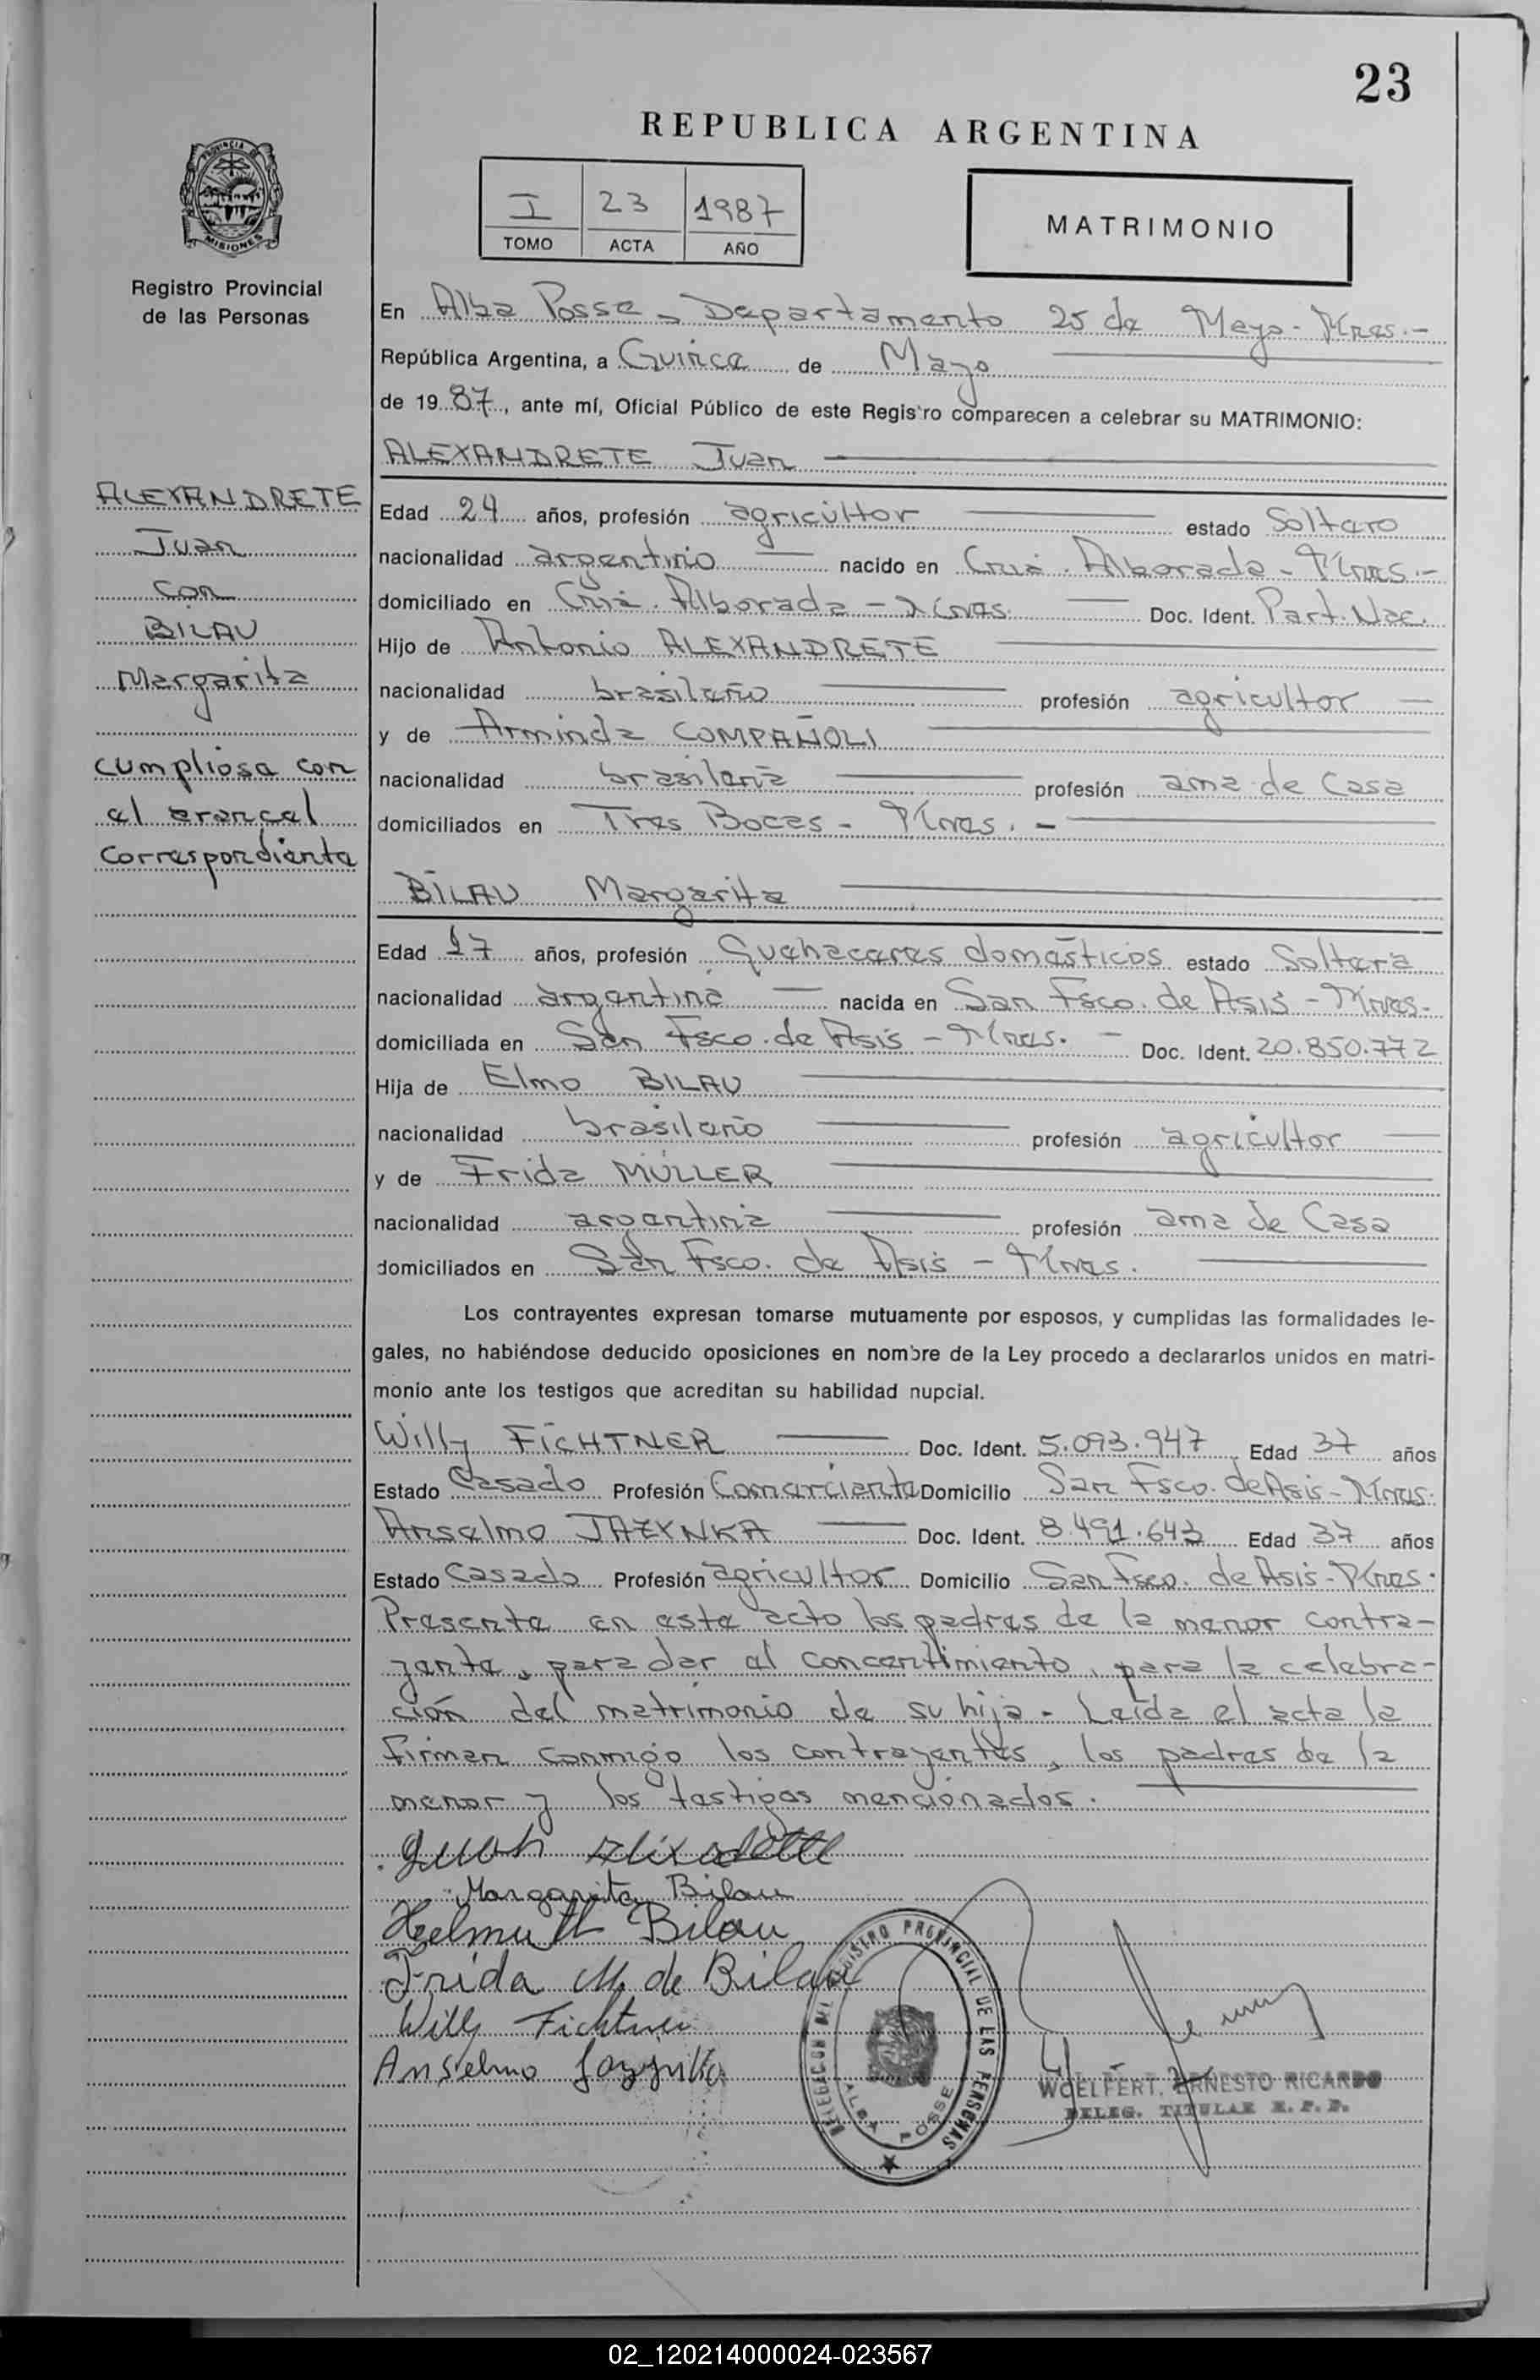 23
REPUBLICA ARGENTINA
I 23 1987
TOMO ACTA AÑO
MATRIMONIO
PROVINCIA DE MISIONES
Registro Provincial
de las Personas
ALEXANDRETE
Juan
con
BILAU
Margarita
cumpliose con
el arancel
correspondiente
En Alba Posse - Departamento 25 de Mayo - Mnes.-
República Argentina, a Quince de Mayo
de 19 87, ante mí, Oficial Público de este Registro comparecen a celebrar su MATRIMONIO:
ALEXANDRETE Juan
Edad 24 años, profesión agricultor estado Soltero
nacionalidad argentino nacido en Cnia. Alborada - Mnes.-
domiciliado en Cnia. Alborada - Mnes. Doc. Ident. Part. Nac.
Hijo de Antonio ALEXANDRETE
nacionalidad brasileño profesión agricultor
y de Arminda COMPAÑOLI
nacionalidad brasileña profesión ama de Casa
domiciliados en Tres Bocas - Mnes. -
BILAU Margarita
Edad 17 años, profesión Quehaceres domésticos estado Soltera
nacionalidad argentina nacida en San Fsco. de Asis - Mnes-
domiciliada en San Fsco. de Asis - Mnes. - Doc. Ident. 20.850.772
Hija de Elmo BILAU
nacionalidad brasileño profesión agricultor
y de Frida MÜLLER
nacionalidad argentina profesión ama de Casa
domiciliados en San Fsco. de Asis - Mnes.
Los contrayentes expresan tomarse mutuamente por esposos, y cumplidas las formalidades le-
gales, no habiéndose deducido oposiciones en nombre de la Ley procedo a declararlos unidos en matri-
monio ante los testigos que acreditan su habilidad nupcial.
Willy FICHTNER Doc. Ident. 5.093.947 Edad 37 años
Estado Casado Profesión Comerciante Domicilio San Fsco. de Asis - Mnes.
Anselmo JAZYNKA Doc. Ident. 8.491.643 Edad 37 años
Estado Casado Profesión agricultor Domicilio San Fsco. de Asis - Mnes.
Presente en este acto los padres de la menor contra-
yente, para dar el concentimiento, para la celebra-
ción del matrimonio de su hija - Leída el acta la
firman conmigo los contrayentes, los padres de la
menor y los testigos mencionados.
Juan
Margarita Bilau
Helmuth Bilau
Frida M de Bilau
Willy Fichtner
Anselmo
REGISTRO PROVINCIAL DE LAS PERSONAS
ALBA POSSE
WOELFERT, ERNESTO RICARDO
DELEG. TITULAR R. P. P.
02_120214000024-023567